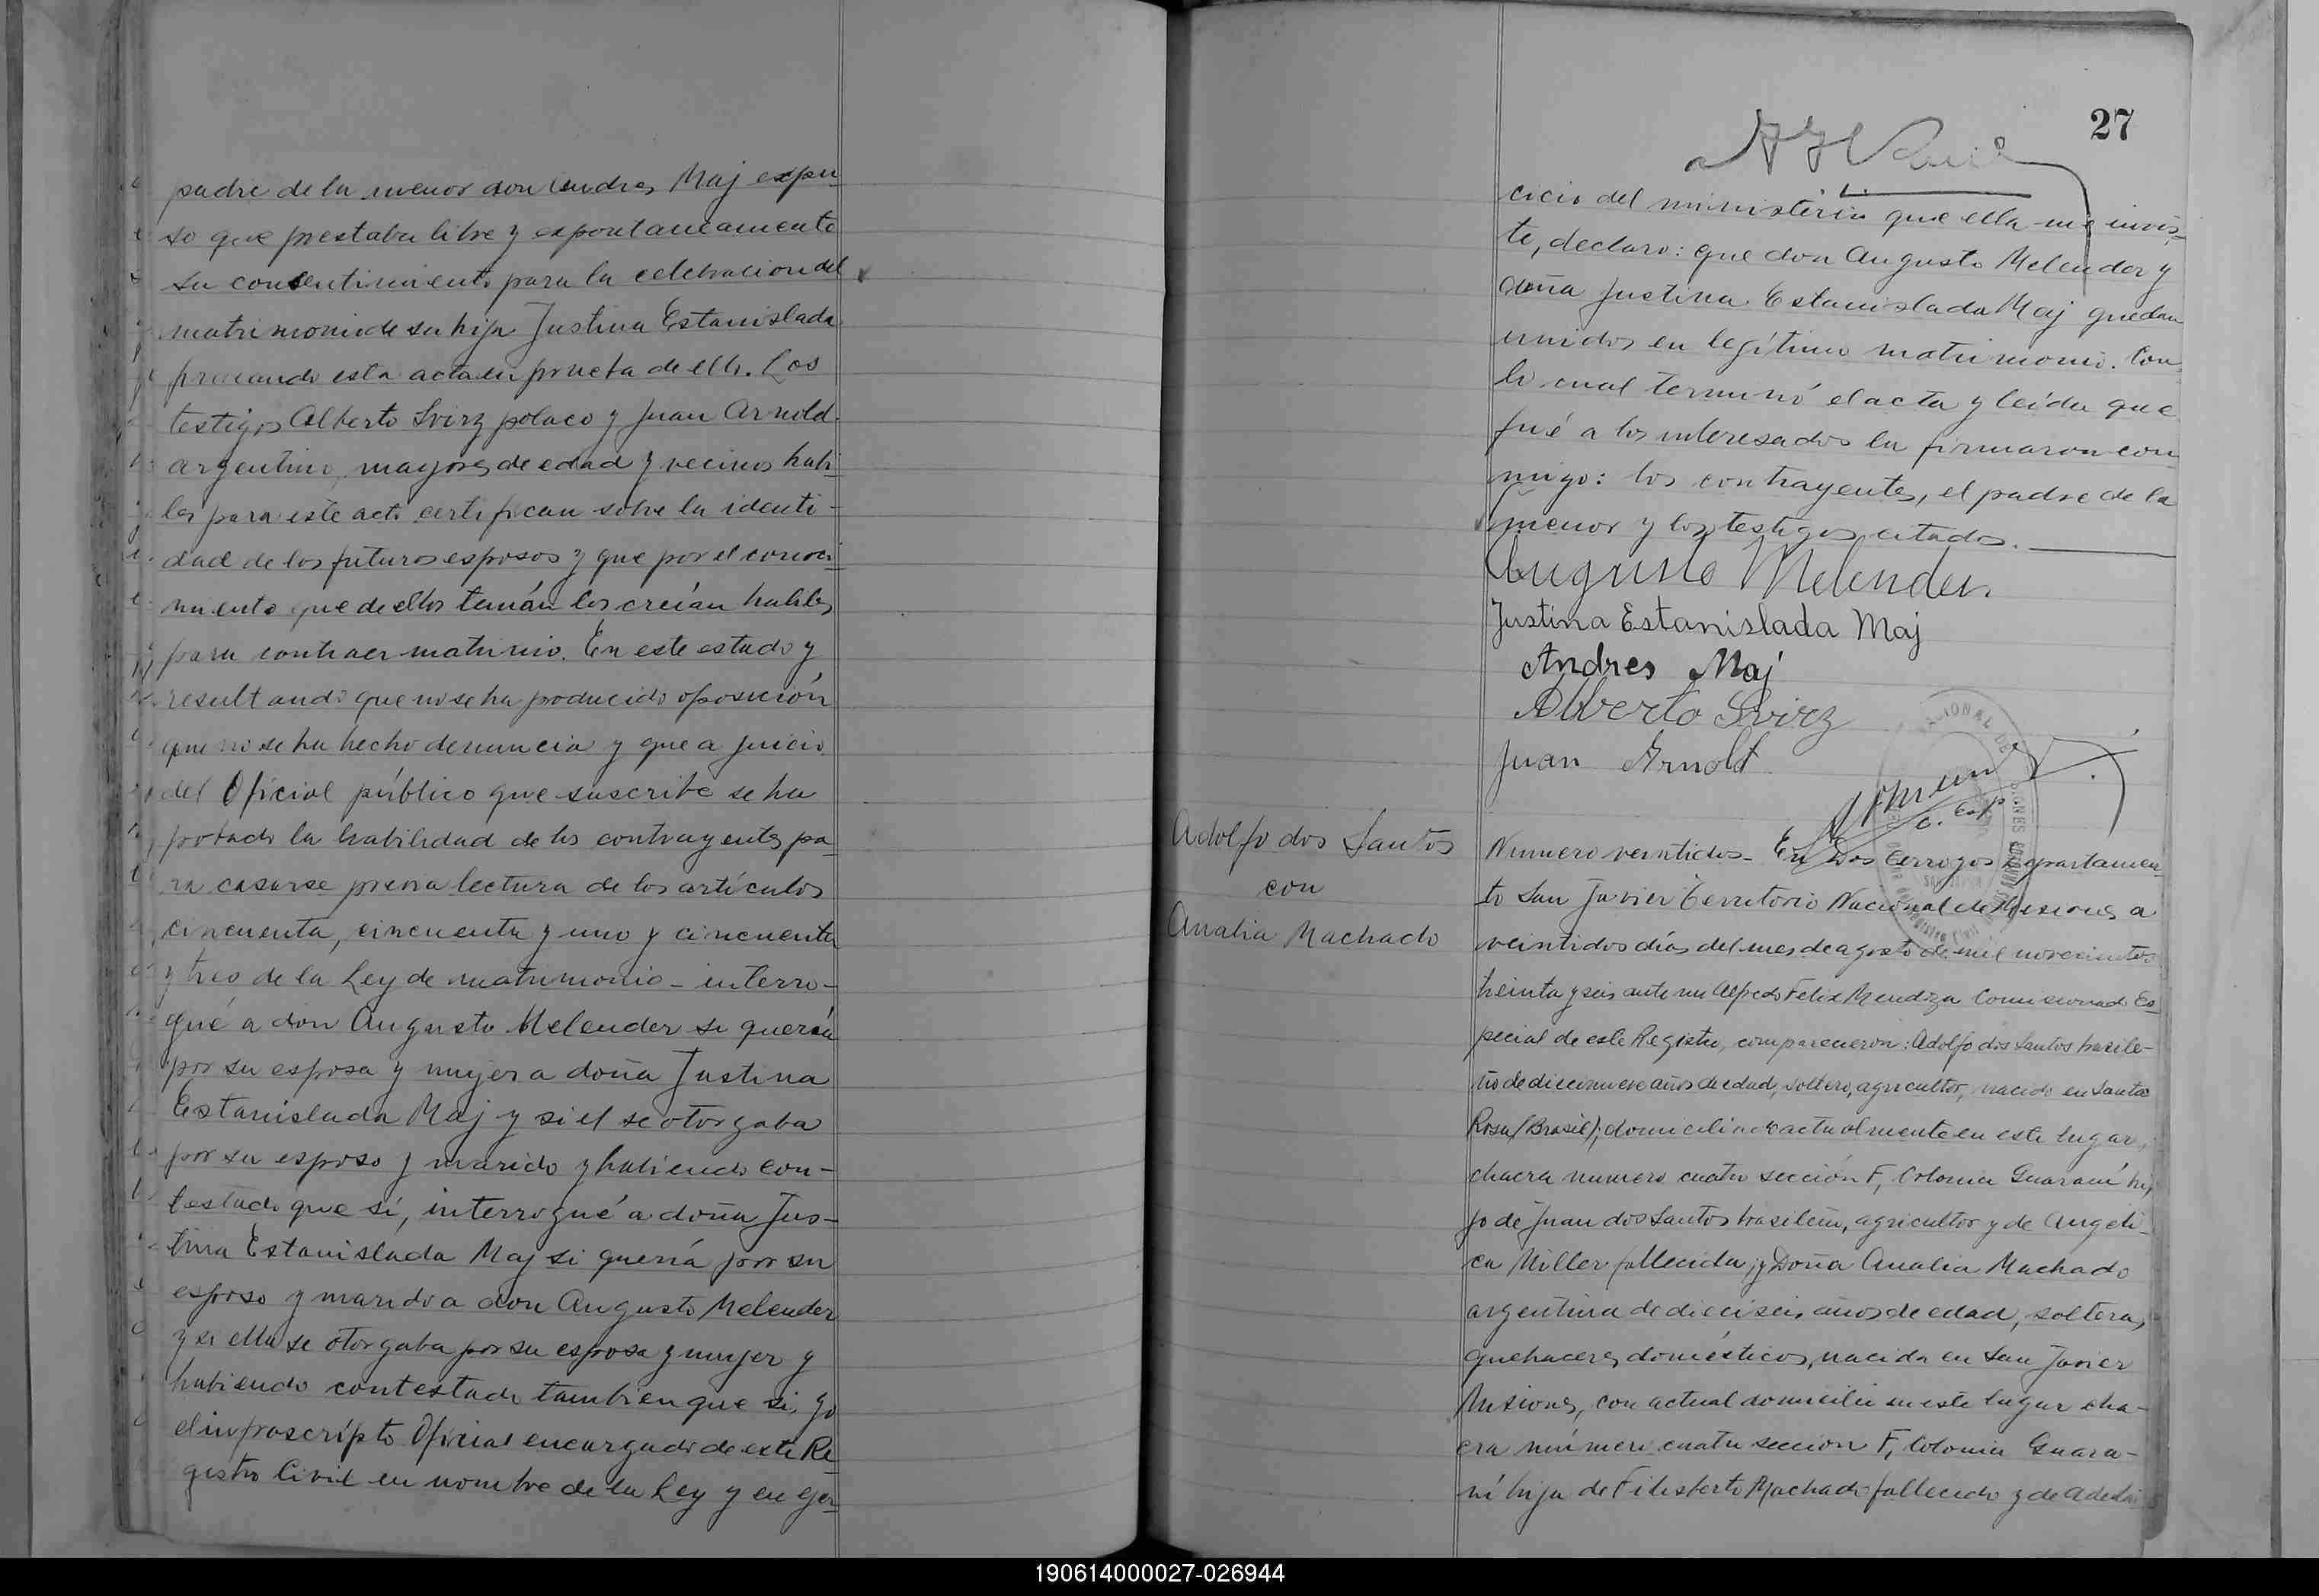 padre de la menor don Andres Maj expu-
so que prestaba libre y espontaneamente
su consentimiento para la celebracion del
matrimonio de su hija Justina Estanislada
firmando esta acta en prueba de ello. Los
testigos Alberto Svirz polaco y Juan Arnold
argentino, mayores de edad y vecinos habi-
les para este acto certifican sobre la identi-
dad de los futuros esposos y que por el conoci-
miento que de ellos tenían los creían habiles
para contraer matrimonio. En este estado y
resultando que no se ha producido oposición
que no se ha hecho denuncia y que a juicio
del Oficial público que suscribe se ha
probado la habilidad de los contrayentes pa-
ra casarse previa lectura de los artículos
cincuenta, cincuenta y uno y cincuenta
y tres de la Ley de matrimonio - interro-
gué a don Augusto Melender si quería
por su esposa y mujer a doña Justina
Estanislada Maj y si el se otorgaba
por su esposo y marido y habiendo con-
testado que sí, interrogué a doña Jus-
tina Estanislada Maj si quería por su
esposo y marido a don Augusto Melender
y si ella se otorgaba por su esposa y mujer y
habiendo contestado tambien que si, yo
el infrascripto Oficial encargado de este Re-
gistro Civil en nombre de la Ley y en ejer-
27
cicio del ministerio que ella me invis-
te, declaro: que don Augusto Melender y
doña Justina Estanislada Maj quedan
unidos en legítimo matrimonio. Con
lo cual terminó el acta y leída que
fué a los interesados la firmaron con-
migo: los contrayentes, el padre de la
menor y los testigos citados.
Augusto Melender.
Justina Estanislada Maj
Andres Maj
Alberto Svirz
Juan Arnolt
Adolfo dos Santos
con
Analia Machado
Numero veintidos - En Dos Cerrogos Departamen-
to San Javier Territorio Nacional de Misiones a
veintidos días del mes de agosto de mil novecientos
treinta y seis ante mi Alfredo Felix Mendoza Comisionado Es-
pecial de este Registro, comparecieron: Adolfo dos Santos brasile-
ño de diecinueve años de edad, soltero, agricultor, nacido en Santa
Rosa (Brasil), domiciliado actualmente en este lugar,
chacra numero cuatro sección F, Colonia Guaraní hi-
jo de Juan dos Santos brasileño, agricultor y de Angeli-
ca Miller fallecida; y Doña Analia Machado
argentina de dieciseis años de edad, soltera,
quehaceres domésticos, nacida en San Javier
Misiones, con actual domicilio en este lugar cha-
cra número cuatro seccion F, Colonia Guara-
ní hija de Filisberto Machado fallecido y de
190614000027-026944